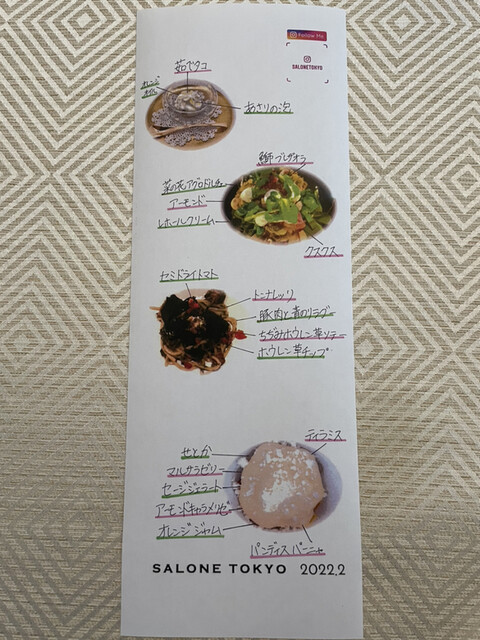 Follow Me
SALONETOKYO
茹でタコ
オレンジ
オイル
あさりの泡
鰤ブレザオラ
菜の花アグロドルチェ
アーモンド
レホールクリーム
クスクス
セミドライトマト
トンナレッリ
豚肉と
のラグー
ちぢみホウレン草ソテー
ホウレン草チップ
ティラミス
せとか
マルサラゼリー
セージジェラート
アーモンドキャラメリゼ
オレンジジャム
パンディスパーニャ
SALONE TOKYO 2022.2